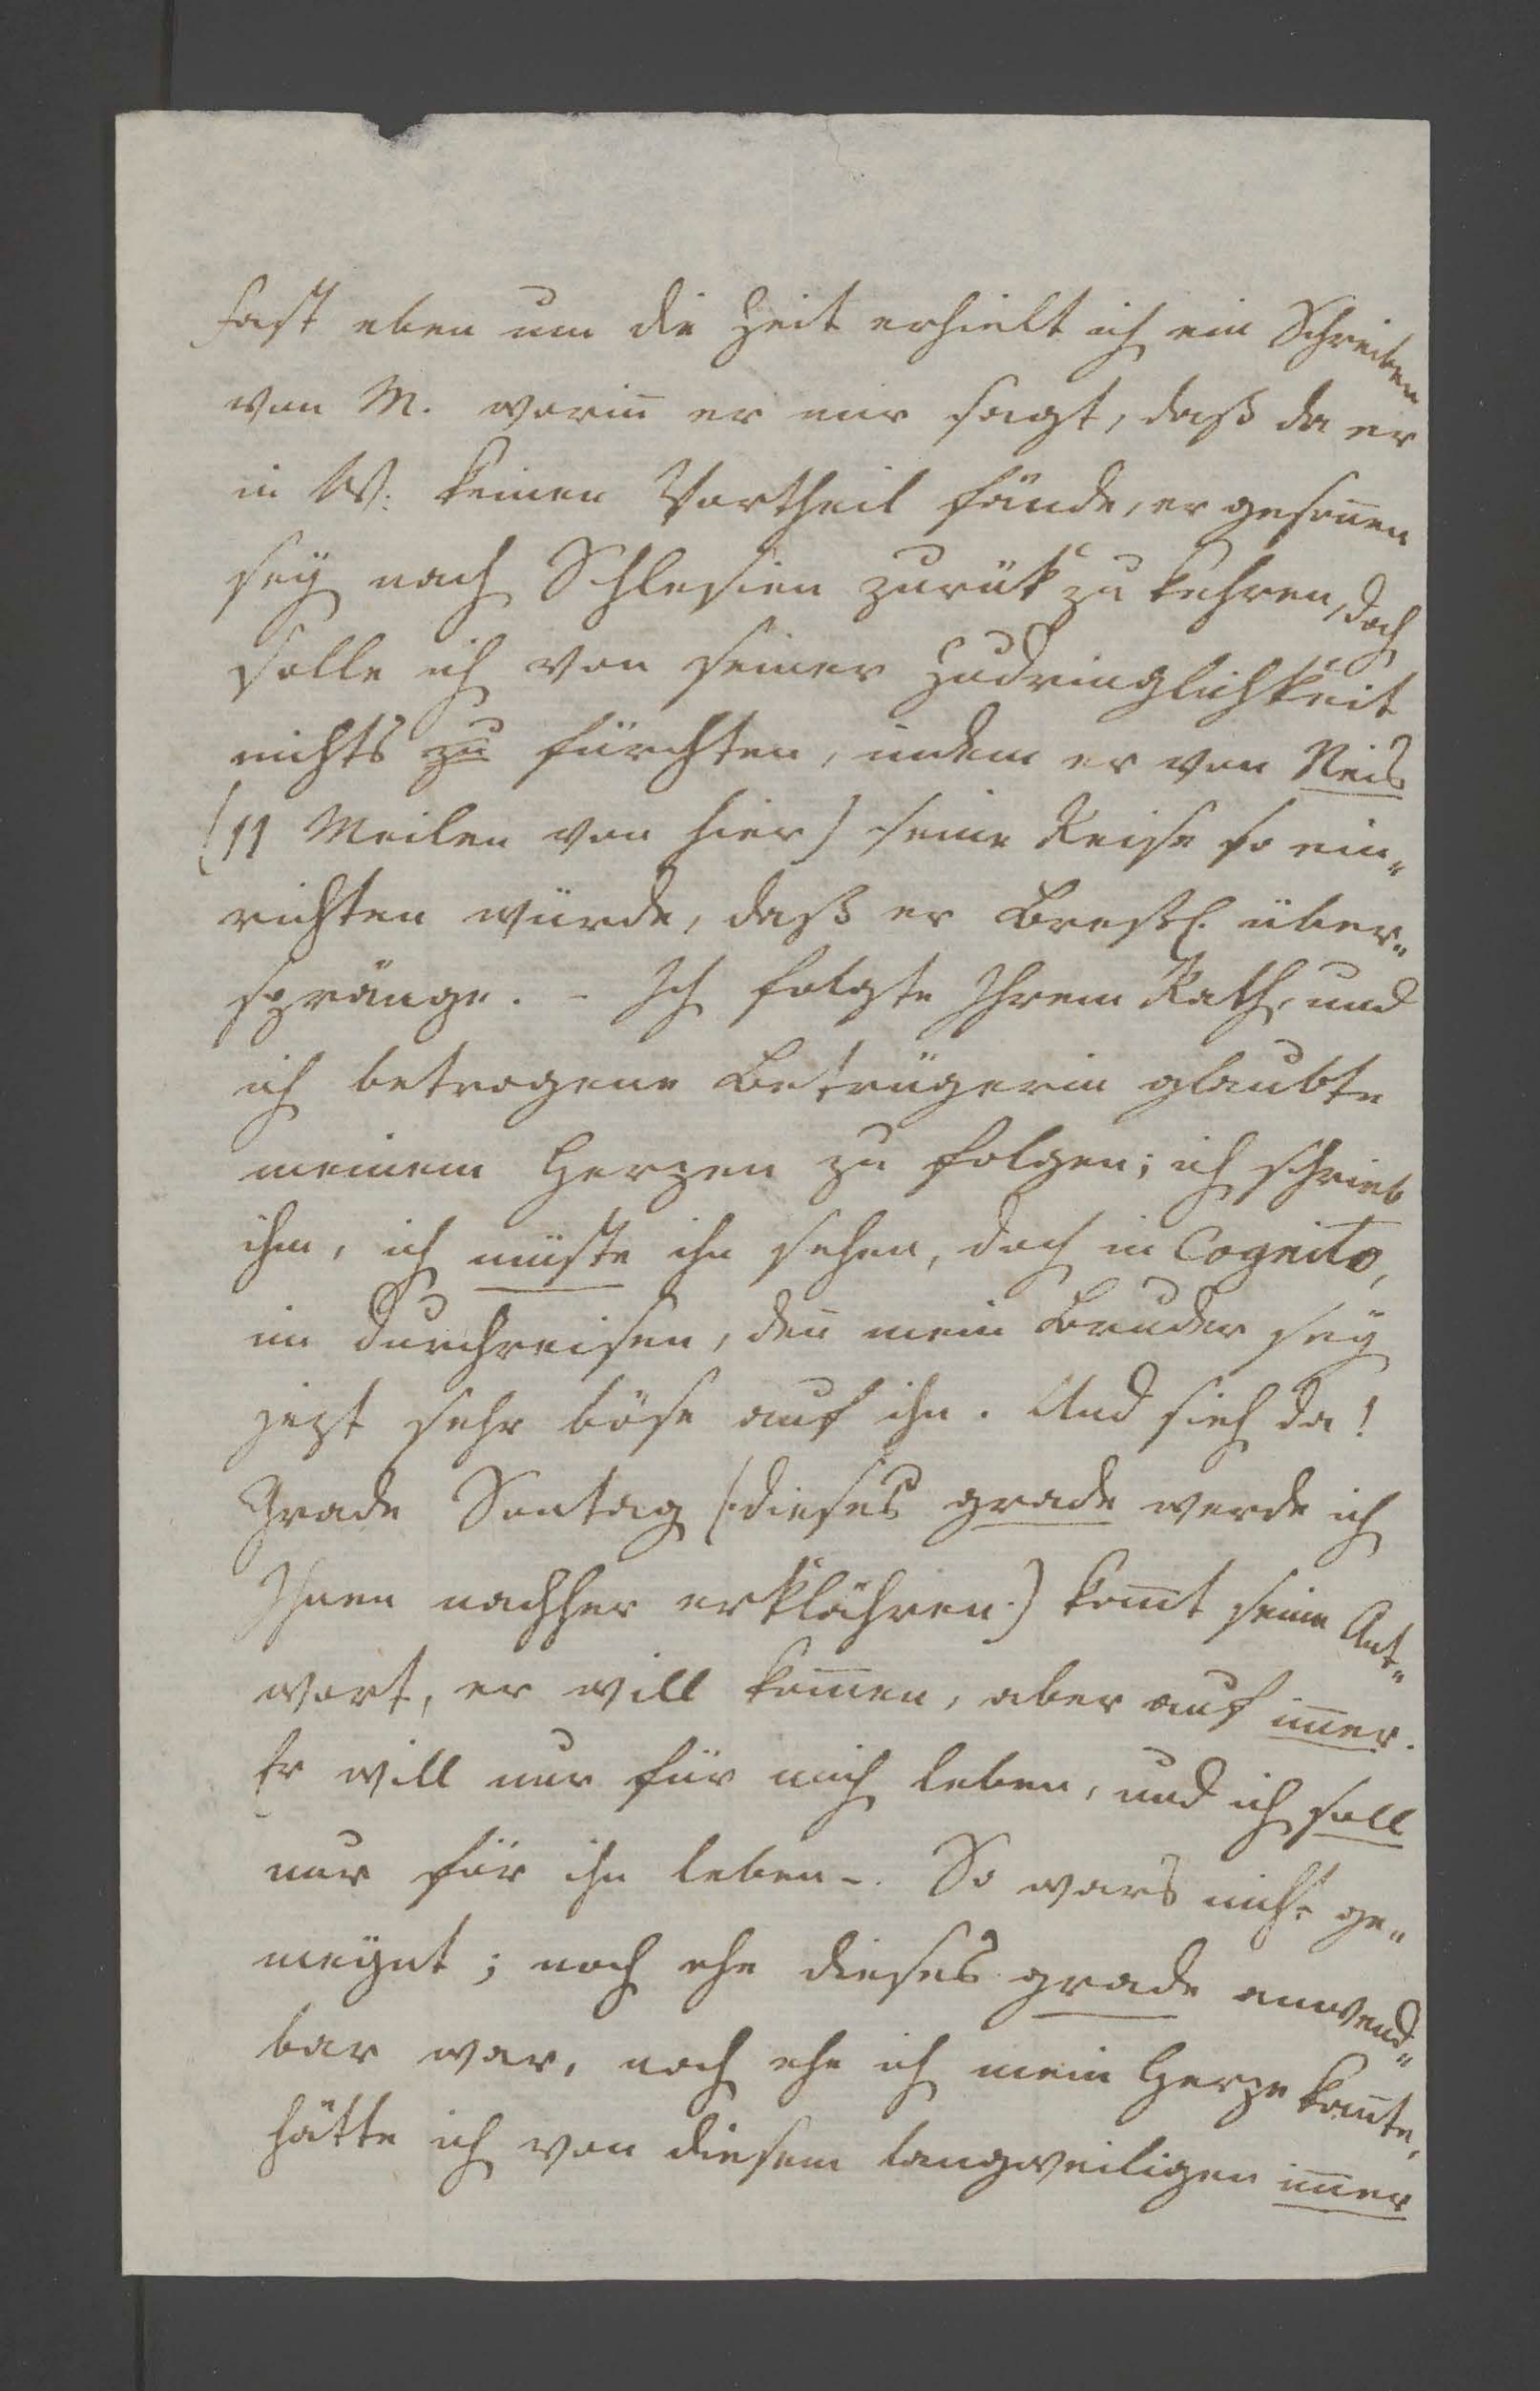 fast eben um die Zeit erhielt ich ein Schreiben
von M. worin̅ er mir sagt, daß da er
in W. keinen Vortheil fände, er geson̅en
seÿ nach Schlesien zurük zu kehren, doch
solle ich von seiner Zudringlichkeit
nichts zu fürchten, indem er von Neis
(11 Meilen von hier) seine Reise so ein„
richten würde, daß er Bresl. über„
spränge. – Ich folgte Ihrem Rath, und
ich betrogene Betrügerin glaubte
meinem Herzen zu folgen; ich schrieb
ihm, ich müste ihn sehen, doch in Cognito,
im durchreisen, den̅ mein Bruder seÿ
jezt sehr böse auf ihn. Und sieh da!
Grade Sontag (:dieses grade werde ich
Ihnen nachher erklähren:) kom̅t seine Ant„
wort, er will kom̅en, aber auf im̅er.
Er will nur für mich leben, und ich soll
nur für ihn leben –. So wars nicht ge„
meÿnt; noch ehe dieses grade anwend„
bar war, noch ehe ich mein Herze kan̅te,
hätte ich von diesem langweiligen im̅er